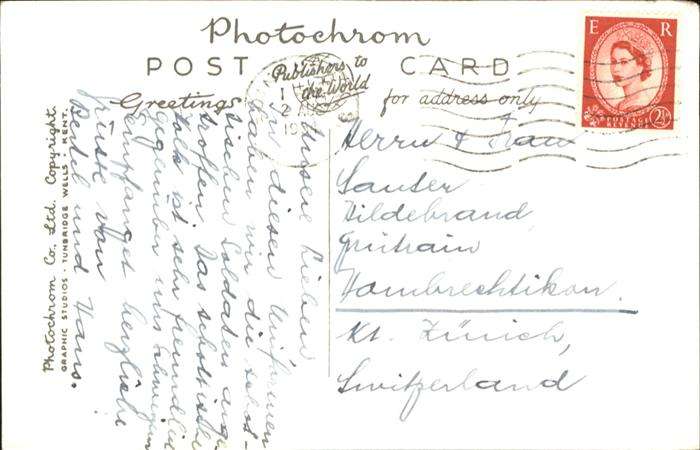 Photochrom
POST CARD
Publishers to
the World
Greetings
for address only
E R
POSTAGE
REVENUE
2½
Photochrom Co., Ltd. Copyright.
GRAPHIC STUDIOS · TUNBRIDGE WELLS · KENT.
Unsere Lieben
In diesen Uniformen
haben wir die schot-
tischen Soldaten ange-
troffen. Das schottische
Volk ist sehr freundlich
gegenüber uns Schweizern
Empfanget herzliche
Grüsse von
Bethli und Hans.
Herrn & Frau
Sauter
Hildebrand
Grütrain
Hombrechtikon.
Kt. Zürich,
Switzerland